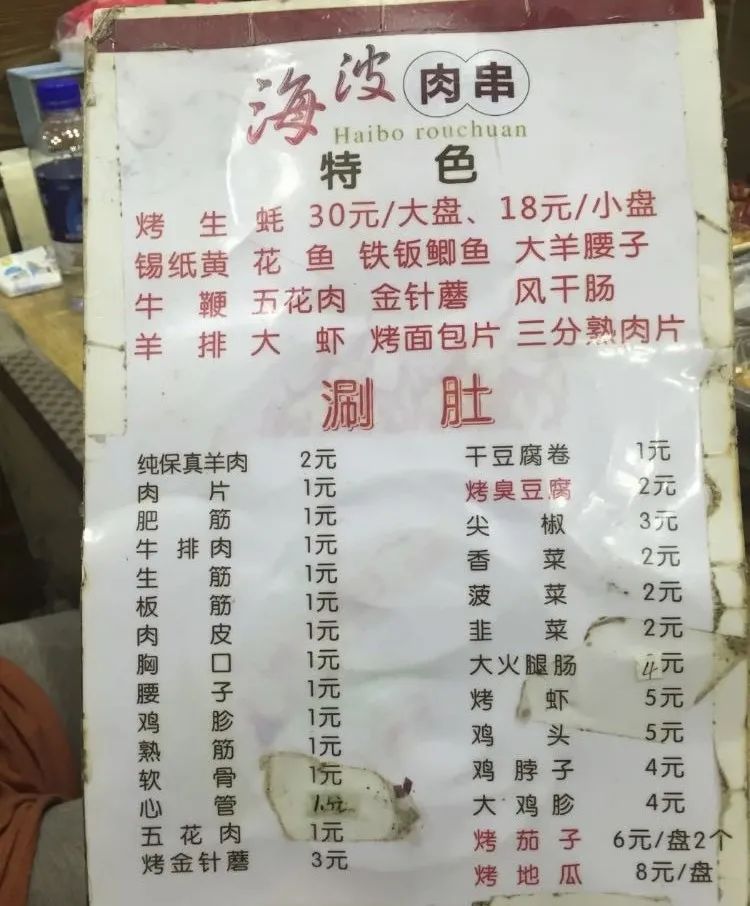 海波肉串
Haibo rouchuan
特色
烤生蚝 30元/大盘、18元/小盘
锡纸黄花鱼 铁钣鲫鱼 大羊腰子
牛鞭 五花肉 金针蘑 风干肠
羊排 大虾 烤面包片 三分熟肉片
涮肚
纯保真羊肉 2元
肉片 1元
肥筋 1元
牛排肉 1元
生筋 1元
板筋 1元
肉皮 1元
胸口 1元
腰子 1元
鸡胗 1元
熟筋 1元
软骨 1元
心管 1.5元
五花肉 1元
烤金针蘑 3元
干豆腐卷 1元
烤臭豆腐 2元
尖椒 3元
香菜 2元
菠菜 2元
韭菜 2元
大火腿肠 4元
烤虾 5元
鸡头 5元
鸡脖子 4元
大鸡胗 4元
烤茄子 6元/盘2个
烤地瓜 8元/盘